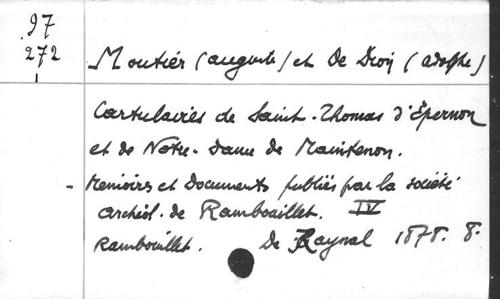 97
272
Moutiér (auguste) et De Dion (adolphe)
Cartulaires de Saint-Thomas d'Épernon
et de Notre-Dame de Maintenon.
- Memoires et Documents publiés par la société
archéol. de Rambouillet. IV
Rambouillet. De Raynal 1878. 8.